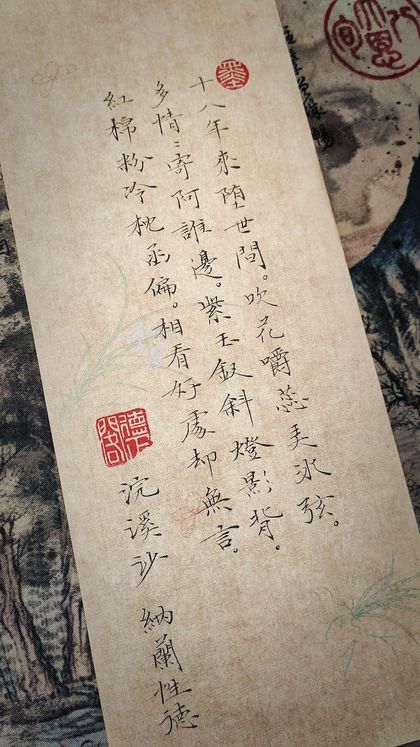 墨
十八年來墮世間。吹花嚼蕊弄冰弦。
多情〻寄阿誰邊。紫玉釵斜燈影背。
紅棉粉冷枕函偏。相看好處却無言。
浣溪沙 納蘭性德